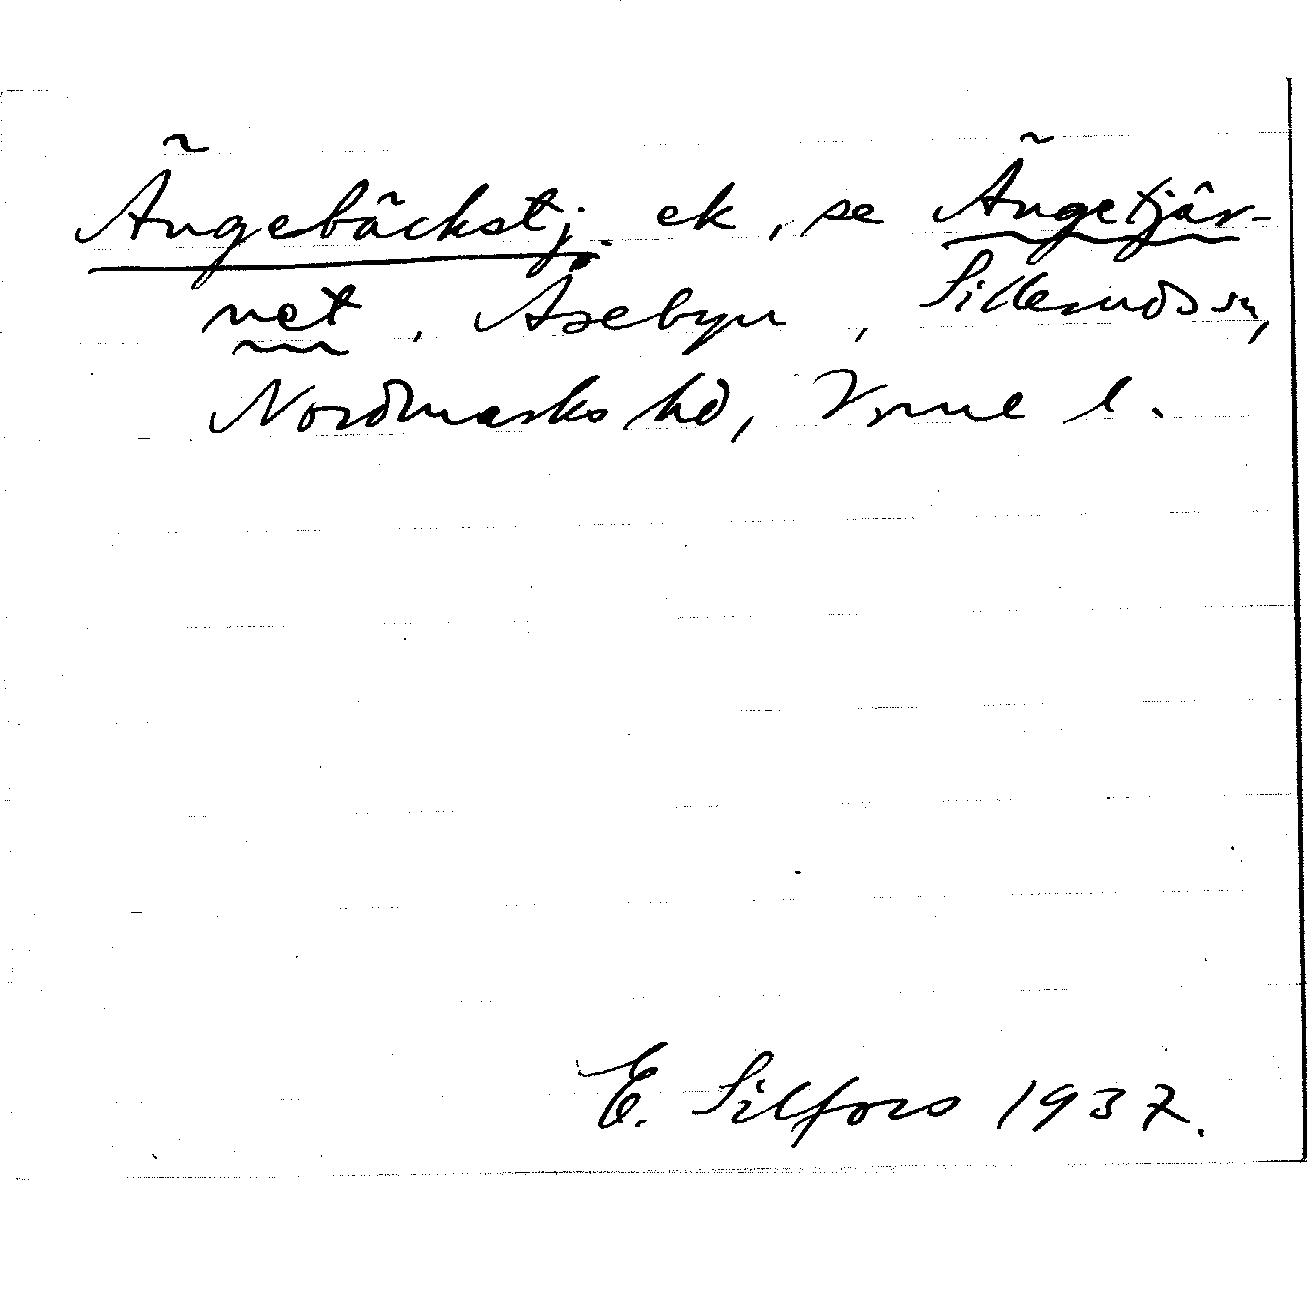 Ängebäckstj. ek, se Ängetjär-
net, Åsebyn, Sillerudss sn,
Nordmarks hd, Vrml l.
E. Silfors 1937.